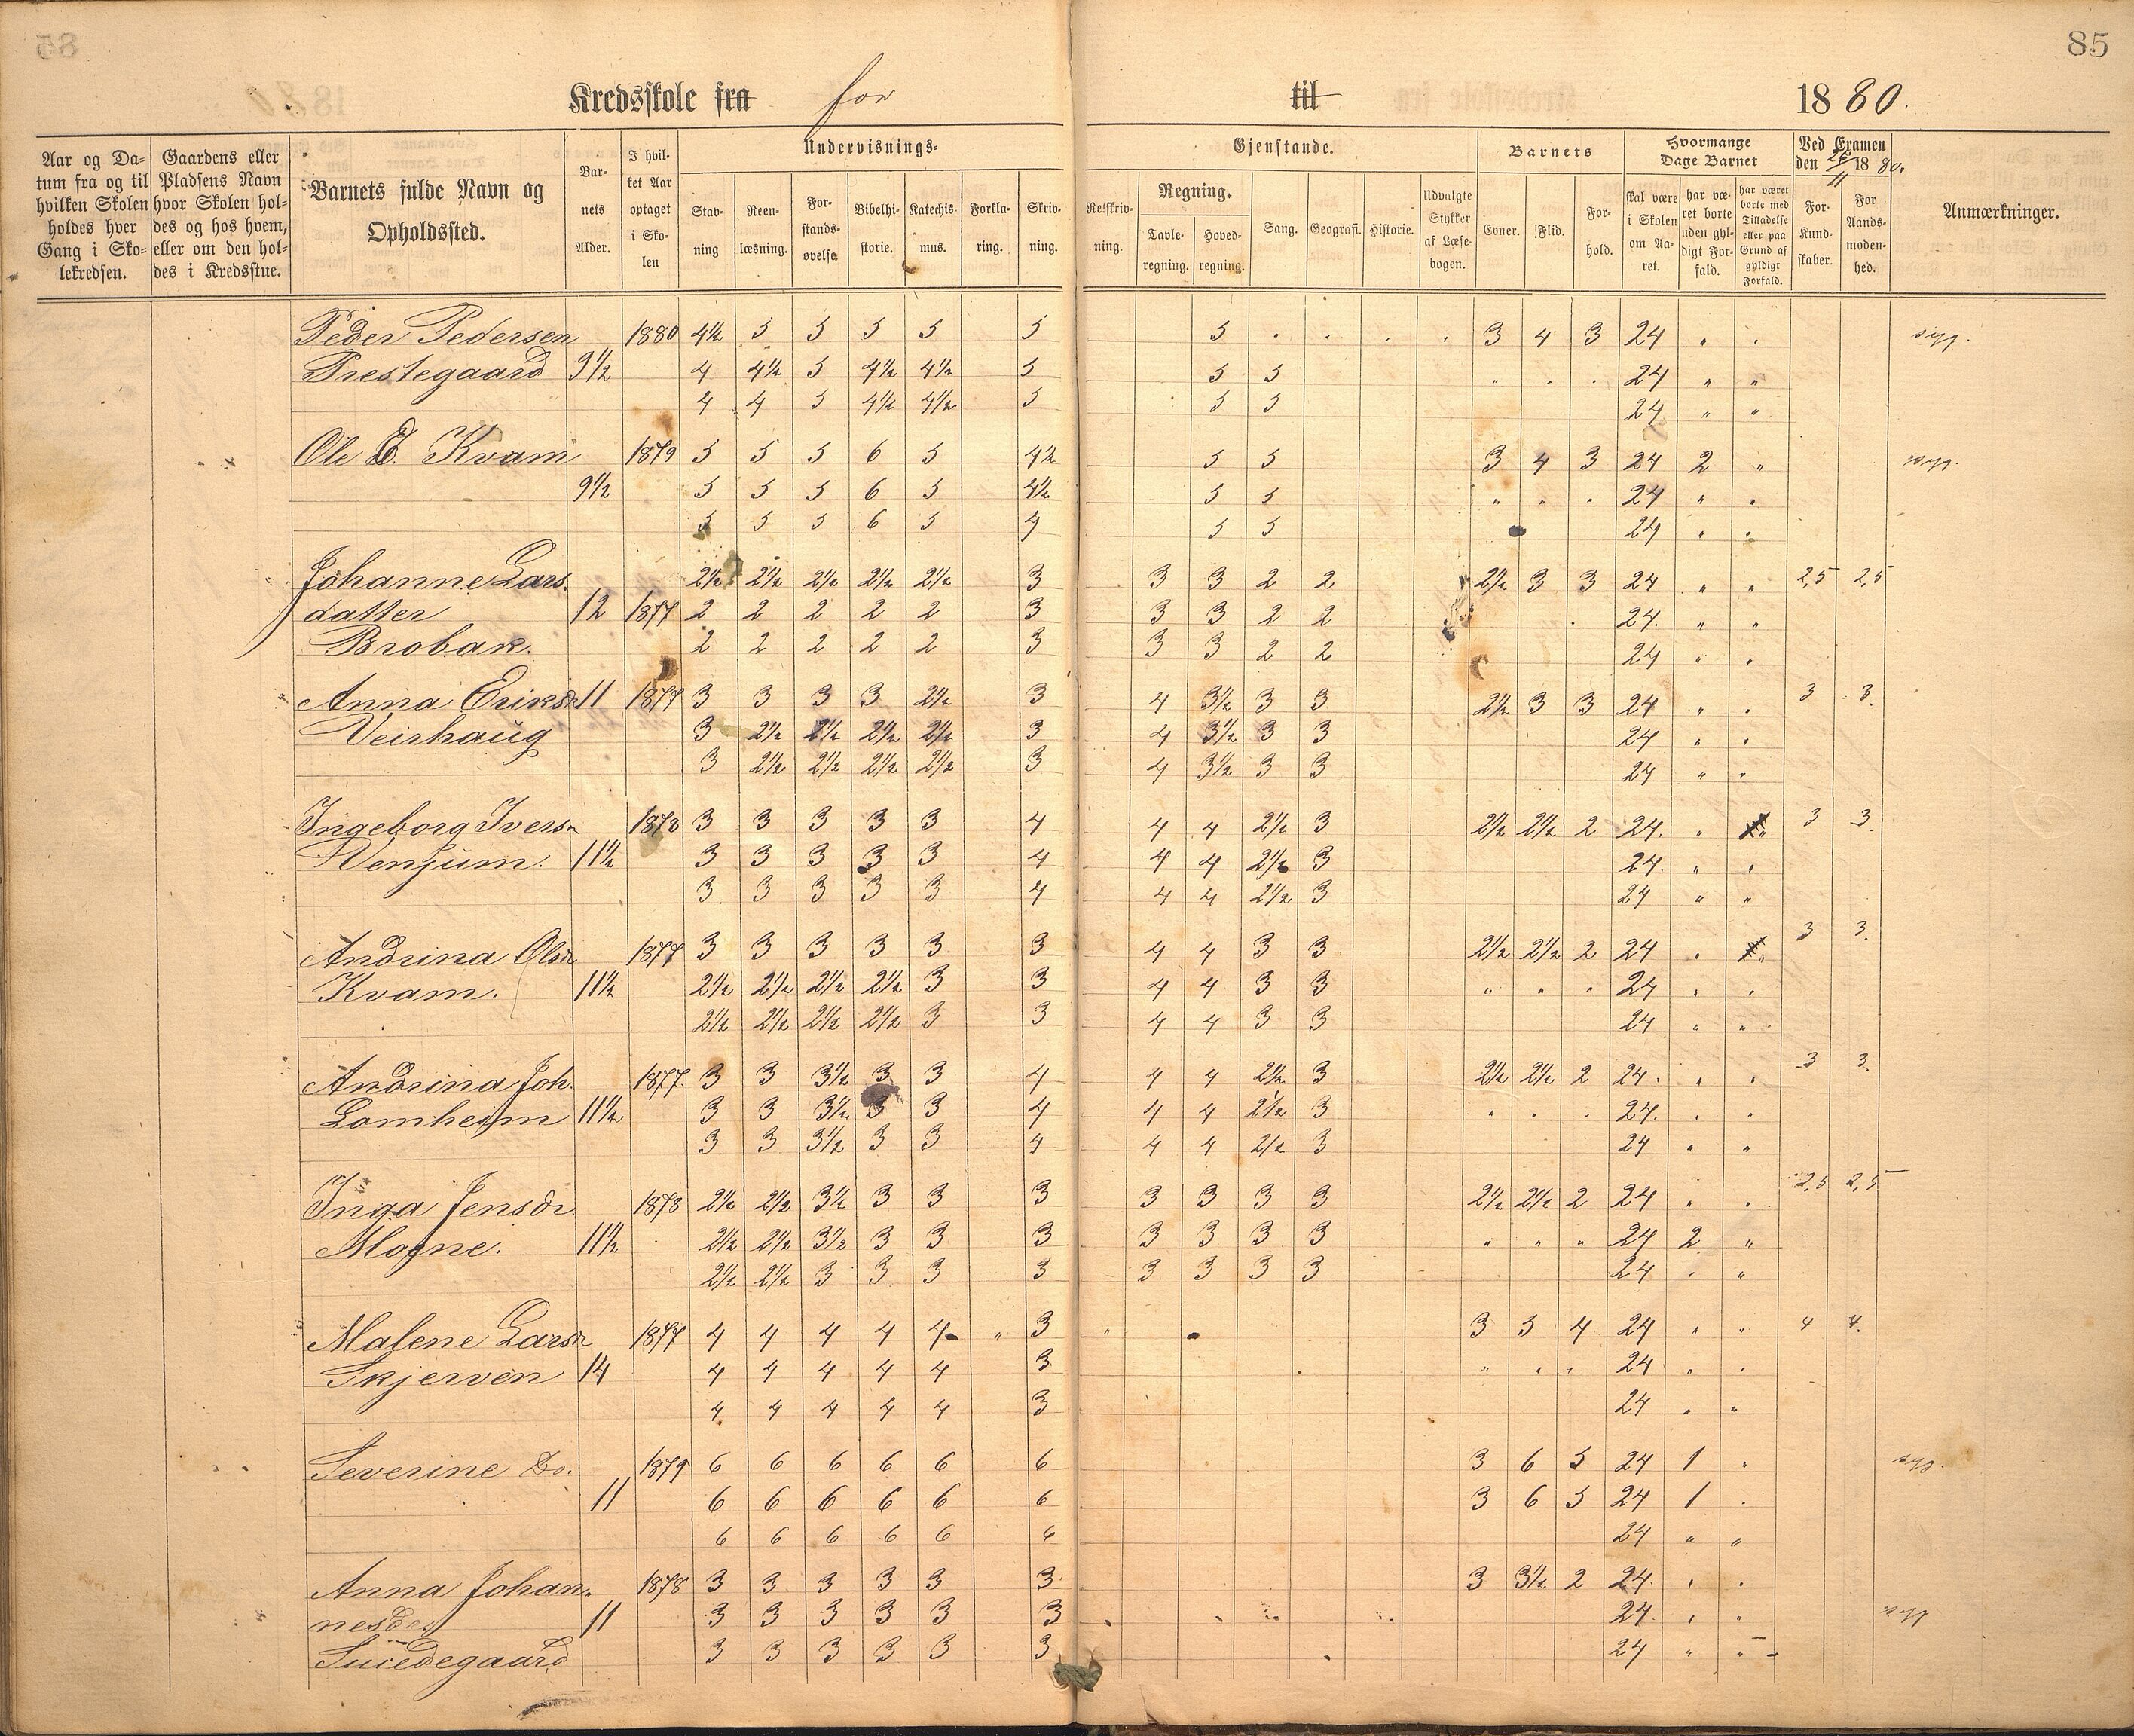 85
Kredsskole fra for til 1880.
Aar og Da- tum fra og til hvilken Skolen holdes hver Gang i Sko- lekredsen.
Gaardens eller Pladsens Navn hvor Skolen hol- des og hos hvem, eller om den hol- des i Kredsstue.
Barnets fulde Navn og Opholdssted.
Bar- nets Alder.
I hvil- ket Aar optaget i Sko- len
Undervisnings- Gjenstande.
Stav- ning
Reen- læsning.
For- stands- øvelse
Bibelhi- storie.
Katechis- mus.
Forkla- ring.
Skriv- ning.
Retskriv- ning.
Regning.
Tavle- regning.
Hoved- regning.
Sang.
Geografi.
Historie.
Udvalgte Stykker af Læse- bogen.
Barnets
Evner.
Flid.
For- hold.
Hvormange Dage Barnet
skal være i Skolen om Aa- ret.
har væ- ret borte uden gyl- digt For- fald.
har været borte med Tilladelse eller paa Grund af gyldigt Forfald.
Ved Examen den 26/11 1880.
For- Kund- skaber.
For Aands- moden- hed.
Anmærkninger.
Peder Pedersen 1880 4½ 5 5 5 5 5 5 . . . . 3 4 3 24 " . syg.
Prestegaard 9½ 4 4½ 5 4½ 4½ 5 5 5 " . . 24 " "
4 4 5 4½ 4½ 5 5 5 24 " "
Ole E. Kvam 1879 5 5 5 6 5 4½ 5 5 3 4 3 24 2 " syg.
9½ 5 5 5 6 5 4½ 5 5 " . . 24 " .
5 5 5 6 5 4 5 5 24 " "
Johanne Lars. 2½ 2½ 2½ 2½ 2½ 3 3 3 2 2 2½ 3 3 24 " " 2,5 2,5
datter 12 1877 2 2 2 2 2 3 3 3 2 2 . 24. " "
Brobak. 2 2 2 2 2 3 3 3 2 2 24 " .
Anna Eriksdr 11 1877 3 3 3 3 2½ 3 4 3½ 3 3 2½ 3 3 24 " . 3 3.
Veirhaug 3 2½ 2½ 2½ 2½ 3 4 3½ 3 3 24 " .
3 2½ 2½ 2½ 2½ 3 4 3½ 3 3 24 " "
Ingeborg Iversn 1878 3 3 3 3 3 4 4 4 2½ 3 2½ 2½ 2 24. " " 3 3.
Venjum. 11½ 3 3 3 3 3 4 4 4 2½ 3 24. " .
3 3 3 3 3 4 4 4 2½ 3 24 " "
Andrina Olsdr 1877 3 3 3 3 3 3 4 4 3 3 2½ 2½ 2 24 . " 3 3.
Kvam. 11½ 2½ 2½ 2½ 2½ 3 3 4 4 3 3 " . . 24 . .
2½ 2½ 2½ 2½ 3 3 4 4 3 3 24 " "
Andrina Joh. 1877 3 3 3½ 3 3 4 4 4 2½ 3 2½ 2½ 2 24. . . 3 3.
Lomheim 11½ 3 3 3½ 3 3 4 4 4 2½ 3 . . . 24. . .
3 3 3½ 3 3 4 4 4 2½ 3 24 " "
Inga Jensdr 1878 2½ 2½ 3½ 3 3 3 3 3 3 3 2½ 2½ 2 24 " . 2,5 2,5
Mogne. 11½ 2½ 2½ 3½ 3 3 3 3 3 3 3 " " " 24 2 "
2½ 2½ 3 3 3 3 3 3 3 3 24 . "
Malene Larsdr 1877 4 4 4 4 4 " 3 " 3 5 4 24 " " 4 4.
Skjerven 14 4 4 4 4 4 3 " . . 24 " .
4 4 4 4 4 3 24 . "
Severine Do. 1879 6 6 6 6 6 6 3 6 5 24 1 . syg.
11 6 6 6 6 6 6 3 6 5 24 1 .
6 6 6 6 6 6 24 " "
Anna Johan. 1878 3 3 3 3 3 3 3 3½ 2 24. . .
nesdr 11 3 3 3 3 3 3 24. . " syg
3 3 3 3 3 3 24 " "